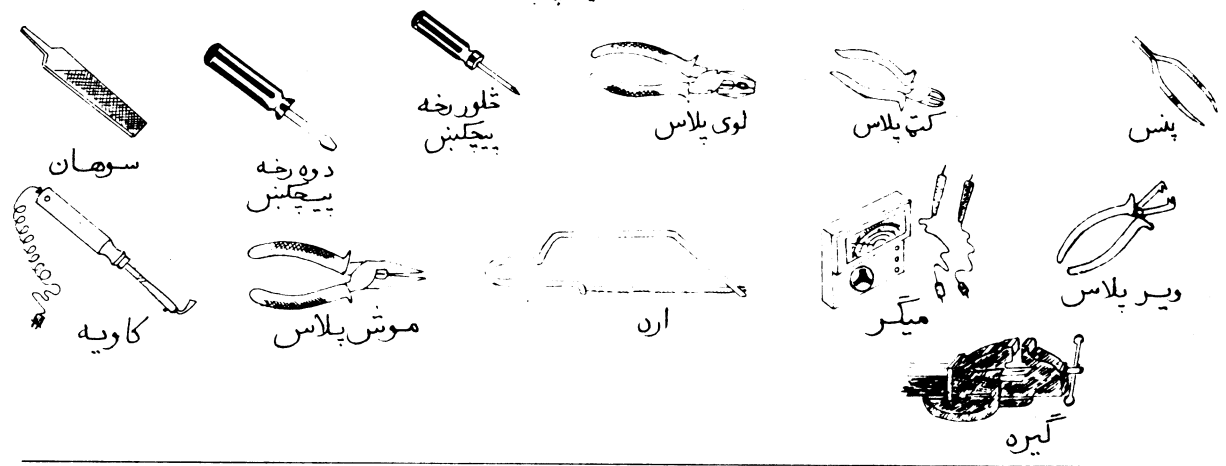 پنس
کټ پلاس
لوی پلاس
څلور رخه
پیچکښ
دوه رخه
پیچکښ
سوهان
ویر پلاس
میګر
اره
موش پلاس
کاویه
ګیره